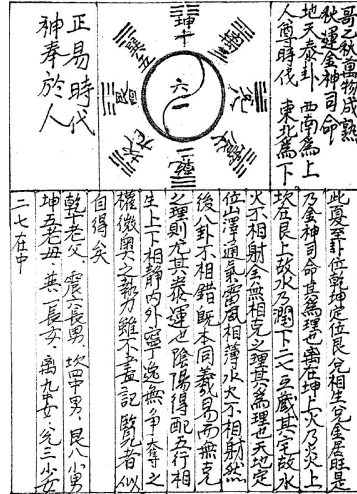 哥乙秋萬物成熟
秋運金神司命
地天泰卦 西南爲上
人尊時代 東北爲下
坤十
六一
正易時代
神奉於人
此夏至卦位乾坤定位艮兌相生兌金居旺是
乃金神司命其爲理也離在坤上火乃炎上
坎在艮上故水乃閏下二七互藏其宅故水
火不相射金無相克之理其爲理也天地定
位山澤通氣雷風相薄水火不相射然
後八卦不相錯旣本同羲易而無克
之理則尤其泰運也陰陽得配五行相
生上下相靜內外寧逸無爭奪之
權微奧之 雖不盡記覽者似
自得矣
乾十老父 震六長男 坎四中男 艮八少男
坤五老母 巽一長女 離九中女 兌三少女
二七在中